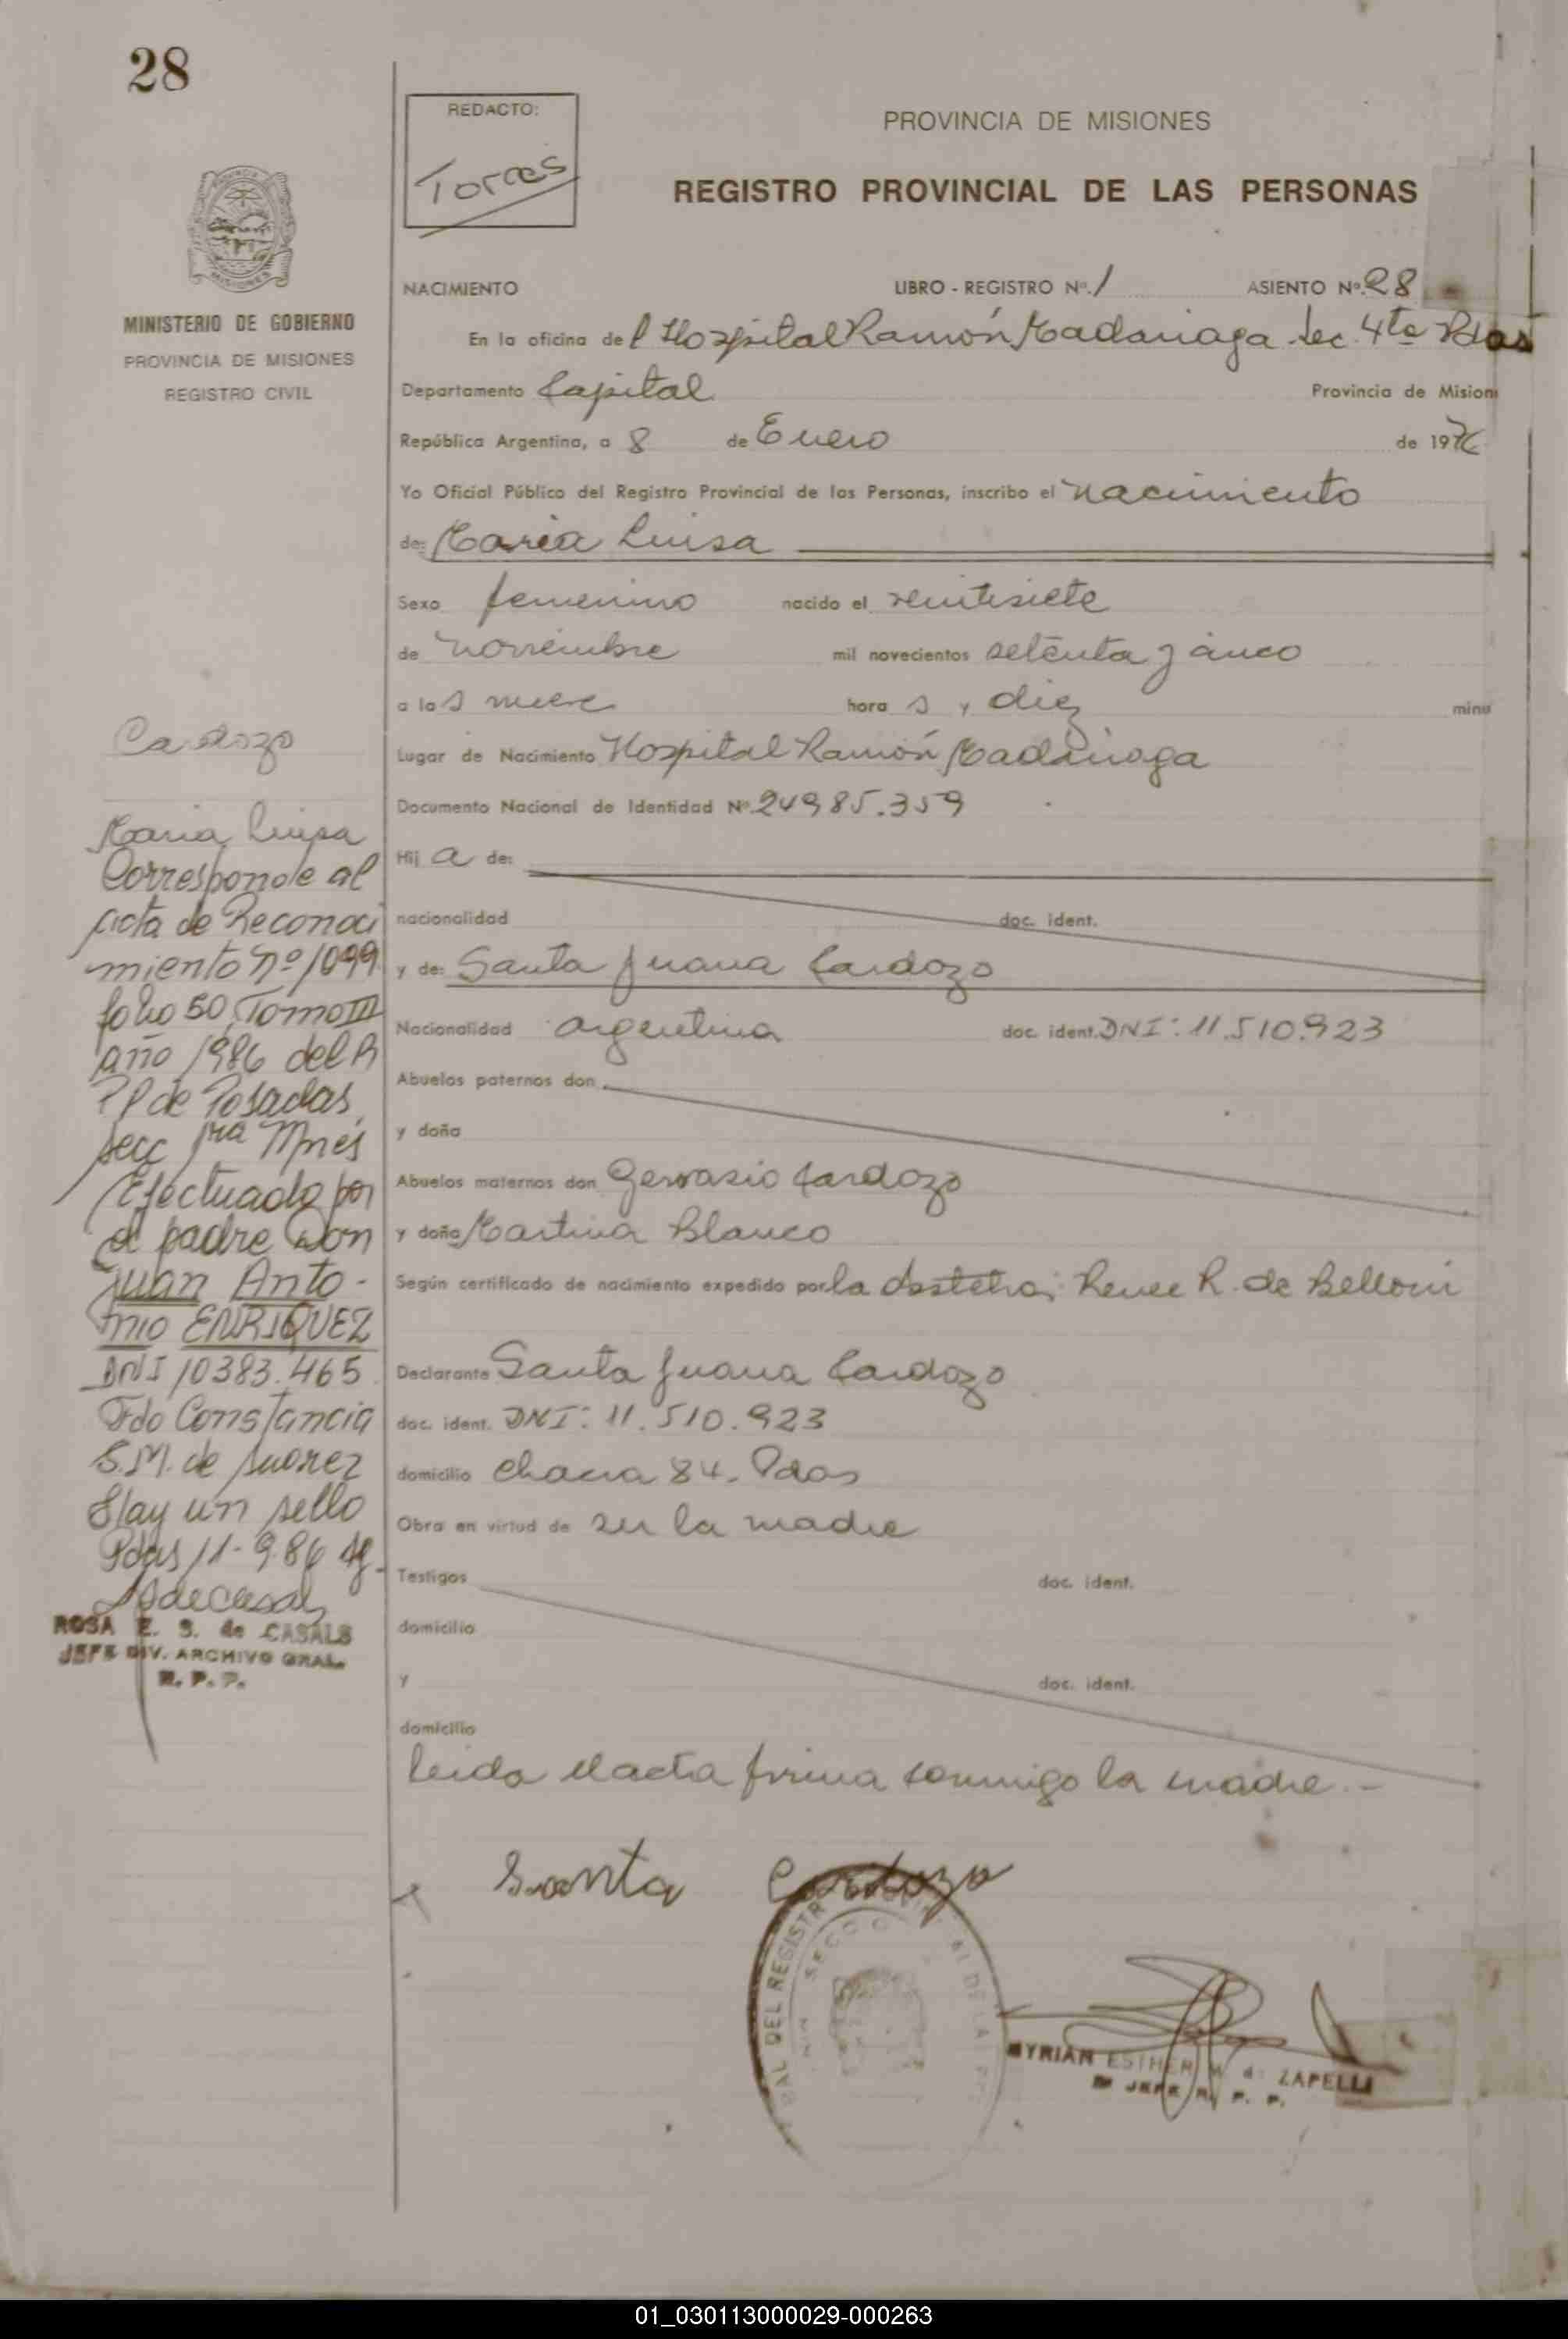 28
REDACTO:
Torres
PROVINCIA DE MISIONES
REGISTRO PROVINCIAL DE LAS PERSONAS
MINISTERIO DE GOBIERNO
PROVINCIA DE MISIONES
REGISTRO CIVIL
NACIMIENTO LIBRO - REGISTRO Nº. 1 ASIENTO Nº. 28
En la oficina de l Hospital Ramón Madariaga Sec. 4ta Pdas
Departamento Capital Provincia de Mision
República Argentina, a 8 de Enero de 1976
Yo Oficial Público del Registro Provincial de las Personas, inscribo el nacimiento
de: Maria Luisa
Sexo femenino nacido el veintisiete
de noviembre mil novecientos setenta y cinco
a las nueve hora s y diez minu
Lugar de Nacimiento Hospital Ramón Madariaga
Documento Nacional de Identidad Nº 24985.359
Hij a de:
nacionalidad doc. ident.
y de: Santa Juana Cardozo
Nacionalidad argentina doc. ident. DNI: 11.510.923
Abuelos paternos don
y doña
Abuelos maternos don Gervasio Cardozo
y doña Martina Blanco
Según certificado de nacimiento expedido por la obstetra; Renee R. de Belloni
Declarante Santa Juana Cardozo
doc. ident. DNI: 11.510.923
domicilio chacra 84. Pdas
Obra en virtud de ser la madre
Testigos doc. ident.
domicilio
y doc. ident.
domicilio
leida el acta firma conmigo la madre.-
Santa Cardozo
Cardozo
Maria Luisa
Corresponde al
acta de Reconoci
miento nº 1099
folio 50 Tomo III
año 1986 del R
PP de Posadas
secc 1ra Mnes
Efectuado por
el padre Don
Juan Anto-
nio ENRIQUEZ
DNI 10383.465
Fdo Constancia
S.M. de Suarez
Hay un sello
Pdas 11-9-86
ROSA E. S. de CASALS
JEFE DIV. ARCHIVO GRAL.
R. P. P.
DEL REGISTR
SECC
MYRIAN ESTHER M. de ZAPELLI
JEFE R. P. P.
01_030113000029-000263